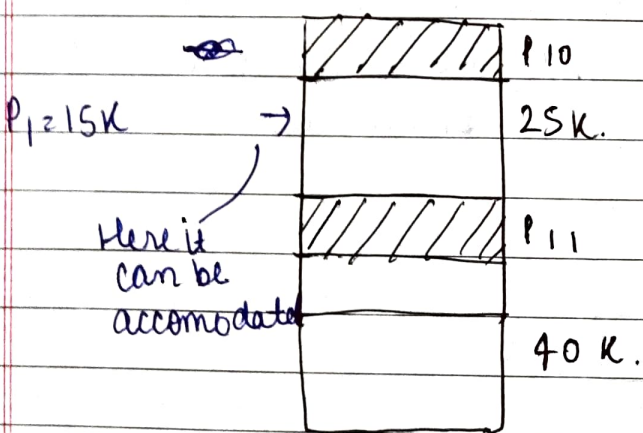 P10
P1 = 15K → 25K.
Here it
can be
accomodated
P11
40 K.